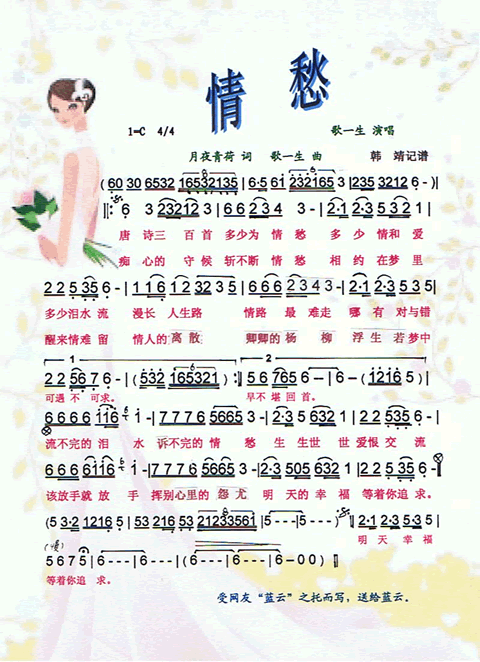 情 愁
1=C 4/4
歌一生 演唱
月夜青荷 词 歌一生 曲 韩 靖记谱
(60 30 6532 16532135 | 6·5 61 232165 3 | 235 3212 6 - )|
6 3 23212 3 | 6 6 2 3 4 3 - | 2·1 2·3 5 3 2 1 |
唐 诗三 百首 多少为 情 愁 多 少 情和 爱
痴 心的 守候 斩不断 情 愁 相 约 在梦 里
2 2 5 35 6 - | 1 1 6 1 2 3 2 3 5 | 6 6 6 2 3 4 3 - | 2·1 2·3 5 3 5 |
多少泪水 流 漫长 人生路 情路 最 难走 哪 有 对与错
醒来情难 留 情人的 离散 卿卿的 杨 柳 浮 生 若梦中
1 2
2 2 5 6 7 6 - | (5 32 165321) :| 5 6 765 6 - | 6 - (1216 5) |
可遇 不 可求。 早不 堪回 首。
6 6 6 6 1 1 6 1 - | 7 7 7 6 5665 3 - | 2·3 5 5 6 32 1 | 2 2 5 35 6 - |
流不完的 泪 水 诉不完的 情 愁 生 生世 世 爱恨 交 流
6 6 6 6116 1 - | 7 7 7 6 5665 3 - | 2·3 505 5 6 32 1 | 2 2 5 35 6 - |
该放手就 放 手 挥别心里的 怨 尤 明 天的 幸 福 等着你 追 求。
(5 3·2 1216 5 | 53 216 53 21233561 | 5 - - - | 5 - - - ) | 2·1 2·3 5·3 5 |
明 天 幸 福
(慢)
5 6 7 5 | 6 - - - | 6 - - - | 6 - - - | 6 - 0 0 ) ‖
等着你 追 求。
受网友“蓝云”之托而写，送给蓝云。